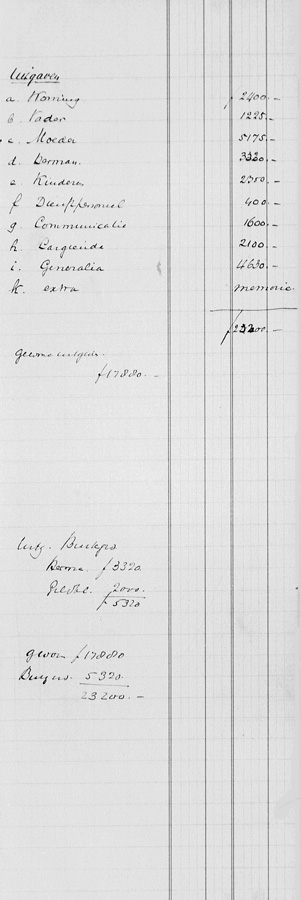 Uitgaven
a. Woning f 2400.-
b. Vader 1225.-
c. Moeder 5175.-
d. Herman 3320.-
e. Kinderen 2350.-
f Dienstpersoneel 400.-
g. Communicatie 1600.-
h. 2100.-
i. Generalia 4630.-
k. extra memorie.
f 23200.-
Gewone uitgaven
f 17880.-
Uitg.
Herma. f 3320
2000.-
f 5320
gewon f 17880
5320.
23200.-